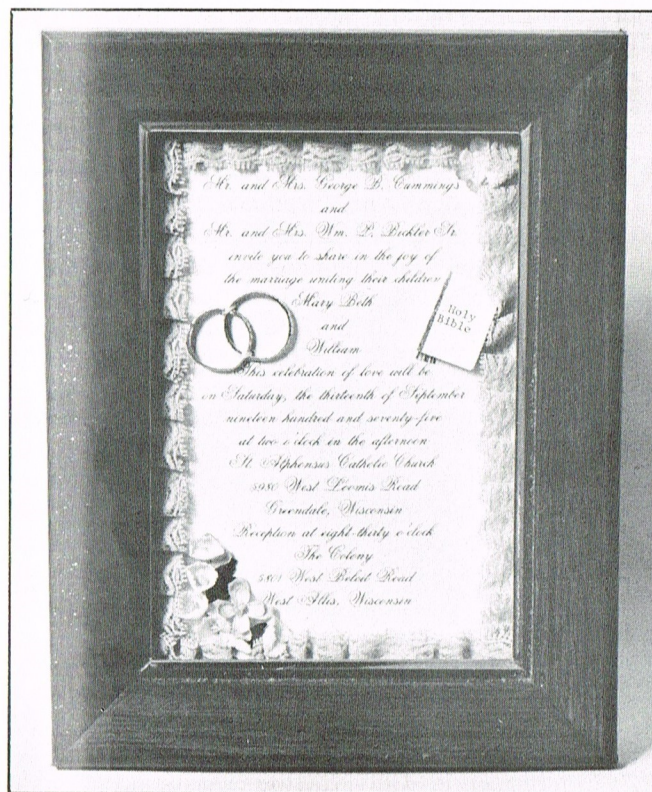 Mr. and Mrs. George B. Cummings
and
Mr. and Mrs. Wm. P. Bickler Sr.
invite you to share in the joy of
the marriage uniting their children
Mary Beth
and
William
This celebration of love will be
on Saturday, the thirteenth of September
nineteen hundred and seventy-five
at two o'clock in the afternoon
St. Alphonsus Catholic Church
5980 West Loomis Road
Greendale, Wisconsin
Reception at eight-thirty o'clock
The Colony
5801 West Beloit Road
West Allis, Wisconsin
Holy
Bible